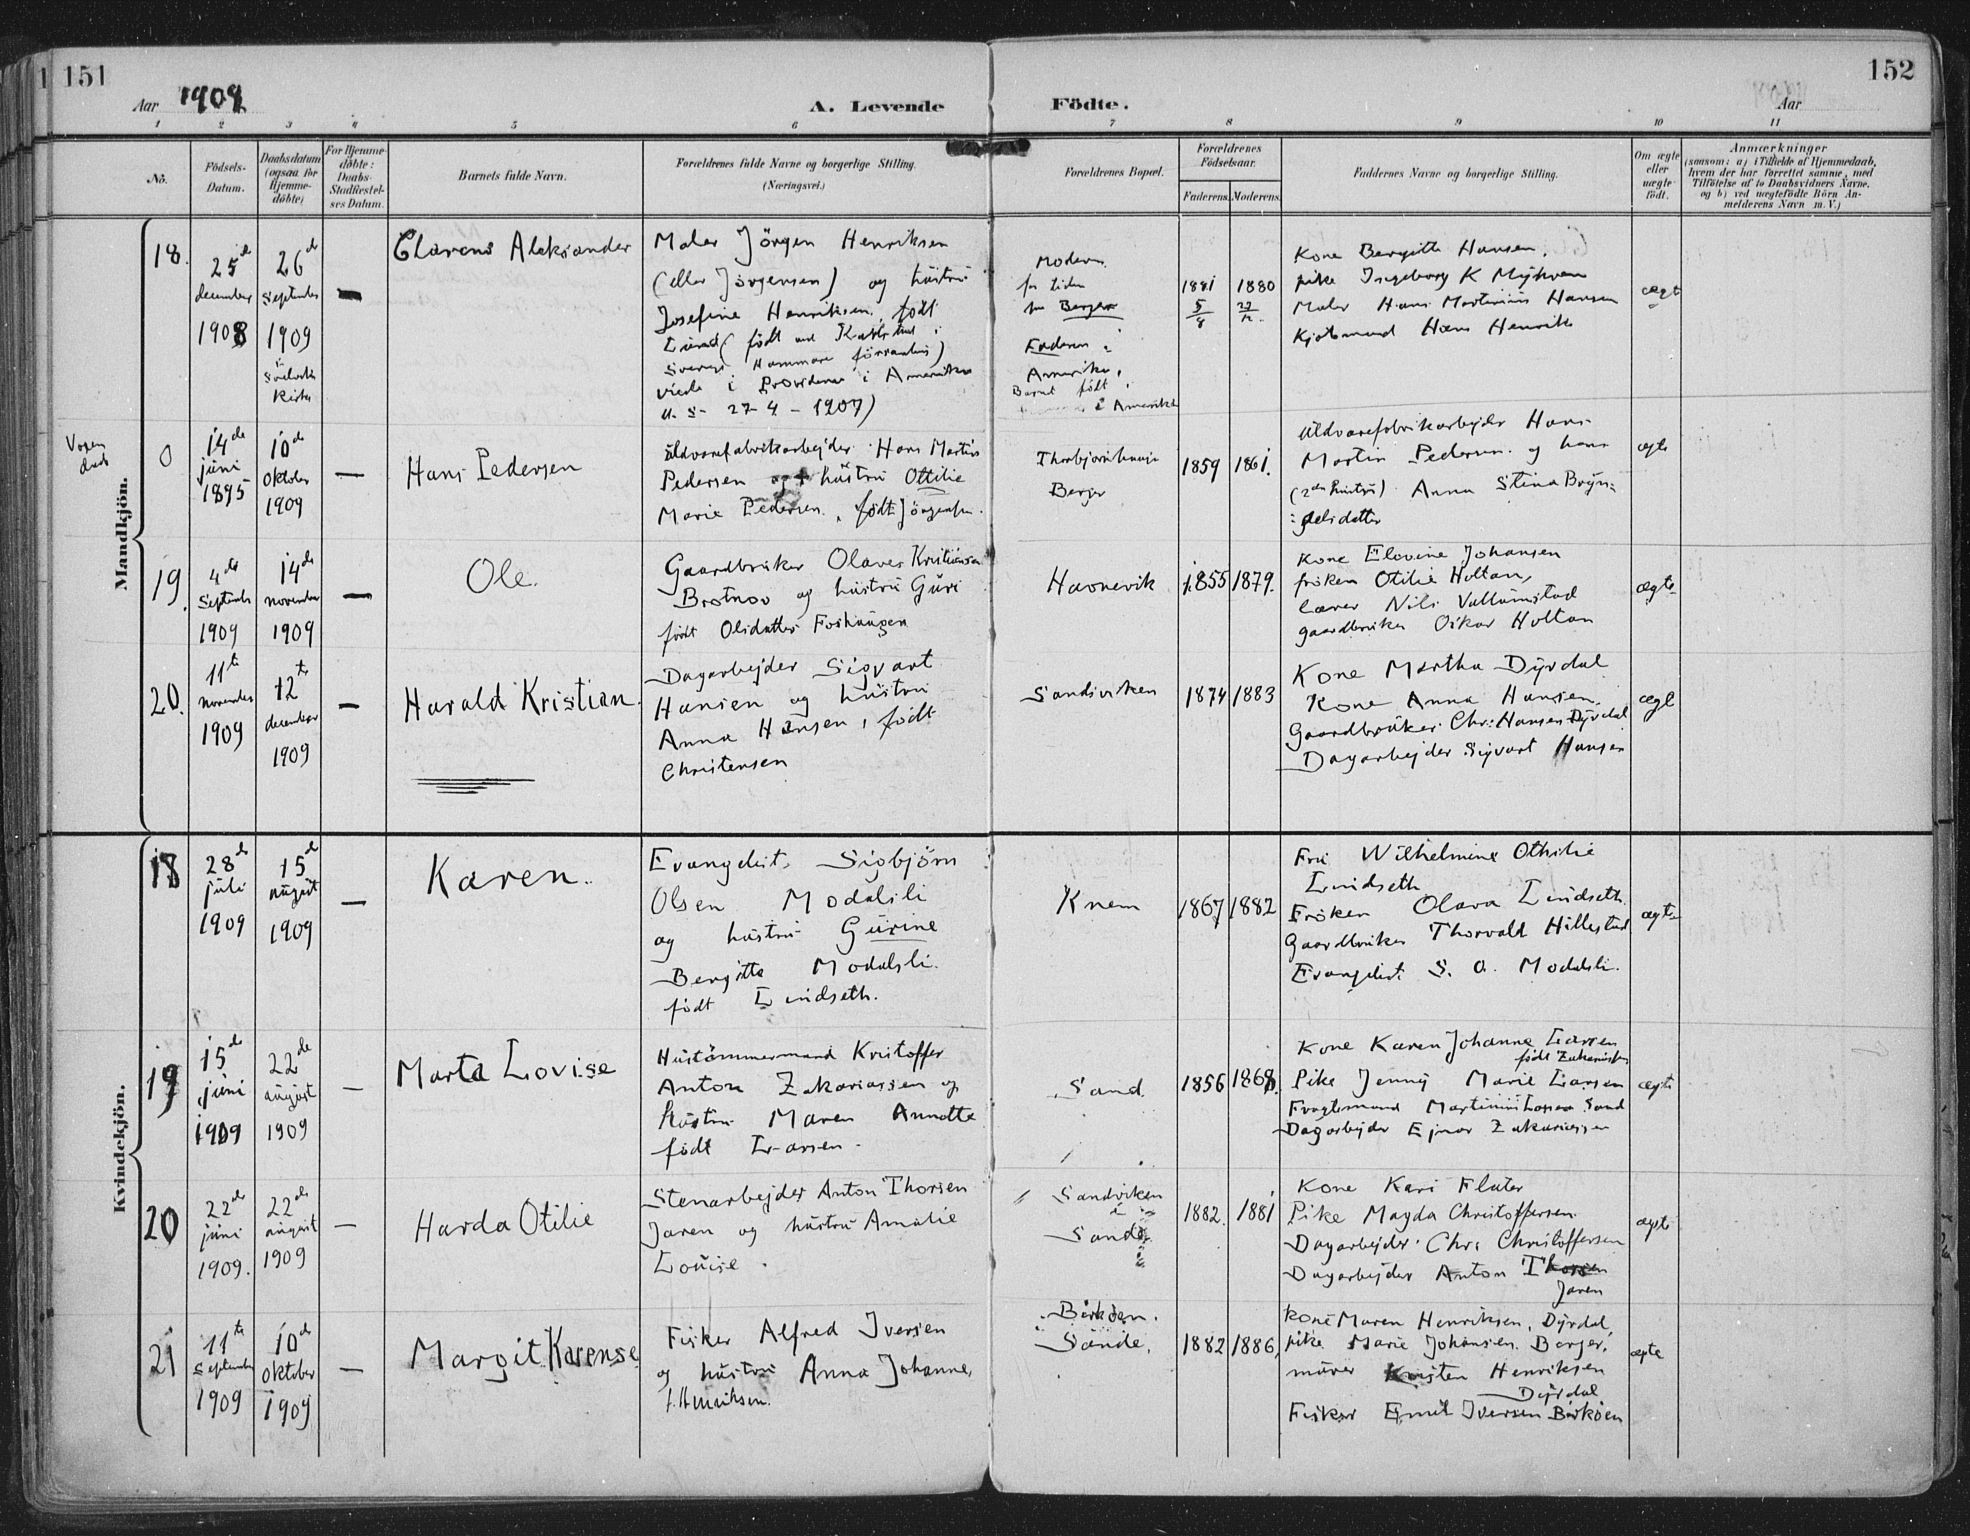 151
152
Aar 1909
A. Levende
Födte.
Aar
1 2 3 4 5 6 7 8 9 10 11
No.
Födsels-
Datum.
Daabsdatum
(ogsaa for
Hjemme-
döbte)
For Hjemme-
döbte:
Daabs-
Stadfæstel-
ses Datum.
Barnets fulde Navn.
Forældrenes fulde Navne og borgerlige Stilling.
(Næringsvei.)
Forældrenes Bopæl.
Forældrenes
Födselsaar.
Faderens. Moderens.
Faddernes Navne og borgerlige Stilling.
Om ægte
eller
uægte
födt.
Anmærkninger
(saasom: a) i Tilfælde af Hjemmedaab,
hvem der har forrettet samme, med
Tilföielse af to Daabsvidners Navne,
og b) ved uægtefödte Börn An-
melderens Navn m. V.)
Mandkjön.
18.
25de
december
1908
26de
September
1909
i
Svelvik
Kirke
—
Clarens Aleksander
Maler Jörgen Henriksen
(eller Jörgensen) og hustru
Josefine Henriksen, födt
Lund (födt ved Karlstad i
Sverige Hammarö församling)
viede i Providence i Amerika
U. S. 27-4-1907)
Modern
for tiden
Berger
Faderen i
Amerika,
Barnet födt
i Amerika
1881
5/8
1880
Kone Bergitte Hansen,
pike Ingeborg K Myhren
Maler Hans Martinius Hansen
Kjöbmand Hans Henriks
ægte
Voxen
daab
0
14de
juni
1895
10de
Oktober
1909
—
Hans Pedersen
Uldvarefabrikarbejder Hans Martin
Pedersen og hustru Ottilie
Marie Pedersen, födt Jörgensen.
Thorbjörnhaug
Berger
1859
1861.
Uldvarefabrikarbejder Hans
Martin Pedersen og hans
(2den hustru) Anna Stina Bryn-
:gelsdatter
ægte
19.
4de
September
1909
14de
november
1909
—
Ole.
Gaardbruker Olaves Kristiansen
Brotnov og hustru Guri
födt Olsdatter Foshaugen
Havnevik
1855
1879.
Kone Elovine Johansen
fröken Otilie Holtan,
lærer Nils Vallumstad
gaardbruker Oskar Holtan
ægte
20.
11te
november
1909
12te
december
1909
—
Harald Kristian.
Dagarbejder Sigvart
Hansen og hustru
Anna Hansen, födt
Christensen
Sandviken
1874
1883
Kone Martha Dyrdal
Kone Anna Hansen,
Gaardbruker Chr: Hansen Dyrdal
Dagarbejder Sigvart Hansen
ægte
Kvindekjön.
18
28de
juli
1909
15de
august
1909
—
Karen.
Evangelist Sigbjörn
Olsen Modalsli
og hustru Gurine
Bergitte Modalsli.
födt Lindseth.
Knem
1867
1882
Fru Wilhelmine Othilie
Lindseth
Fröken Olava Lindseth.
Gaardbruker Thorvald Hillestad
Evangelist S. O. Modalsli.
ægte
19
15de
juni
1909
22de
august
1909
—
Marta Lovise
Hustömmermand Kristoffer
Anton Zakariassen og
hustru Maren Annette
födt Larsen.
Sand.
1856
1868.
Kone Karen Johanne Larsen
födt Zakariassen
Pike Jenny Marie Larsen
Fragtemand Martinius Larsen Sand
Dagarbejder Ejnar Zakariassen
ægte
20
22de
juni
1909.
22de
august
1909
—
Harda Otilie
Stenarbejder Anton Thorsen
Jaren og hustru Amalie
Louise.
Sandviken
i
Sande
1882.
1881
Kone Kari Flater
Pike Magda Christoffersen
Dagarbejder Chr: Christoffersen
Dagarbejder Anton Thorsen
Jaren
ægte
21
11te
September
1909
10de
Oktober
1909
—
Margit Karense
Fisker Alfred Iversen
og hustru Anna Johanne,
f. Henriksen.
Birköen.
Sande.
1882
1886,
Kone Maren Henriksen, Dyrdal,
pike Marie Johansen Berger,
murer Kristen Henriksen
Dyrdal
Fisker Emil Iversen Birköen
ægte